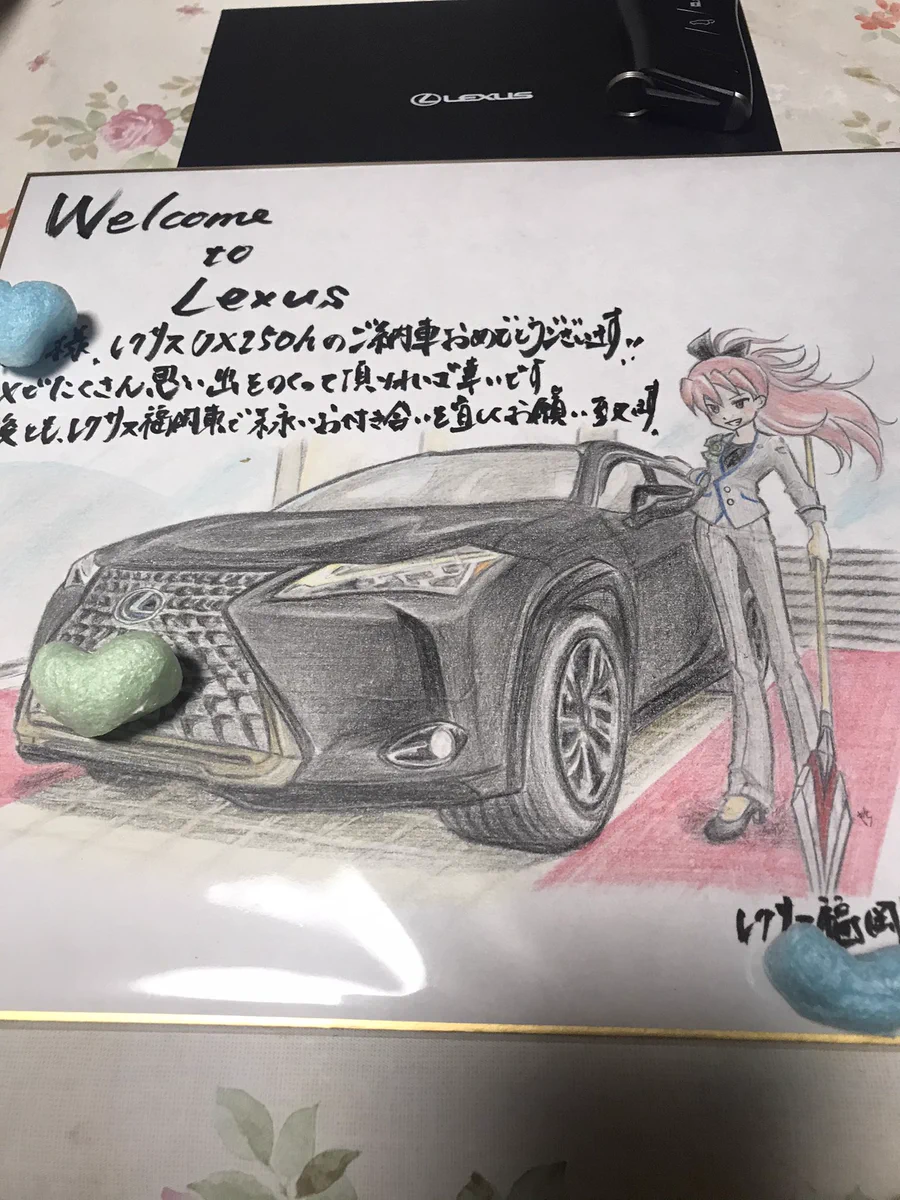 LEXUS
Welcome
to
Lexus
様、レクサスUX250hのご納車おめでとうございます!!
Xでたくさん、思い出をつくって頂ければ幸いです
後とも、レクサス福岡東で末永いお付き合いを宜しくお願い致します。
レクサス福岡